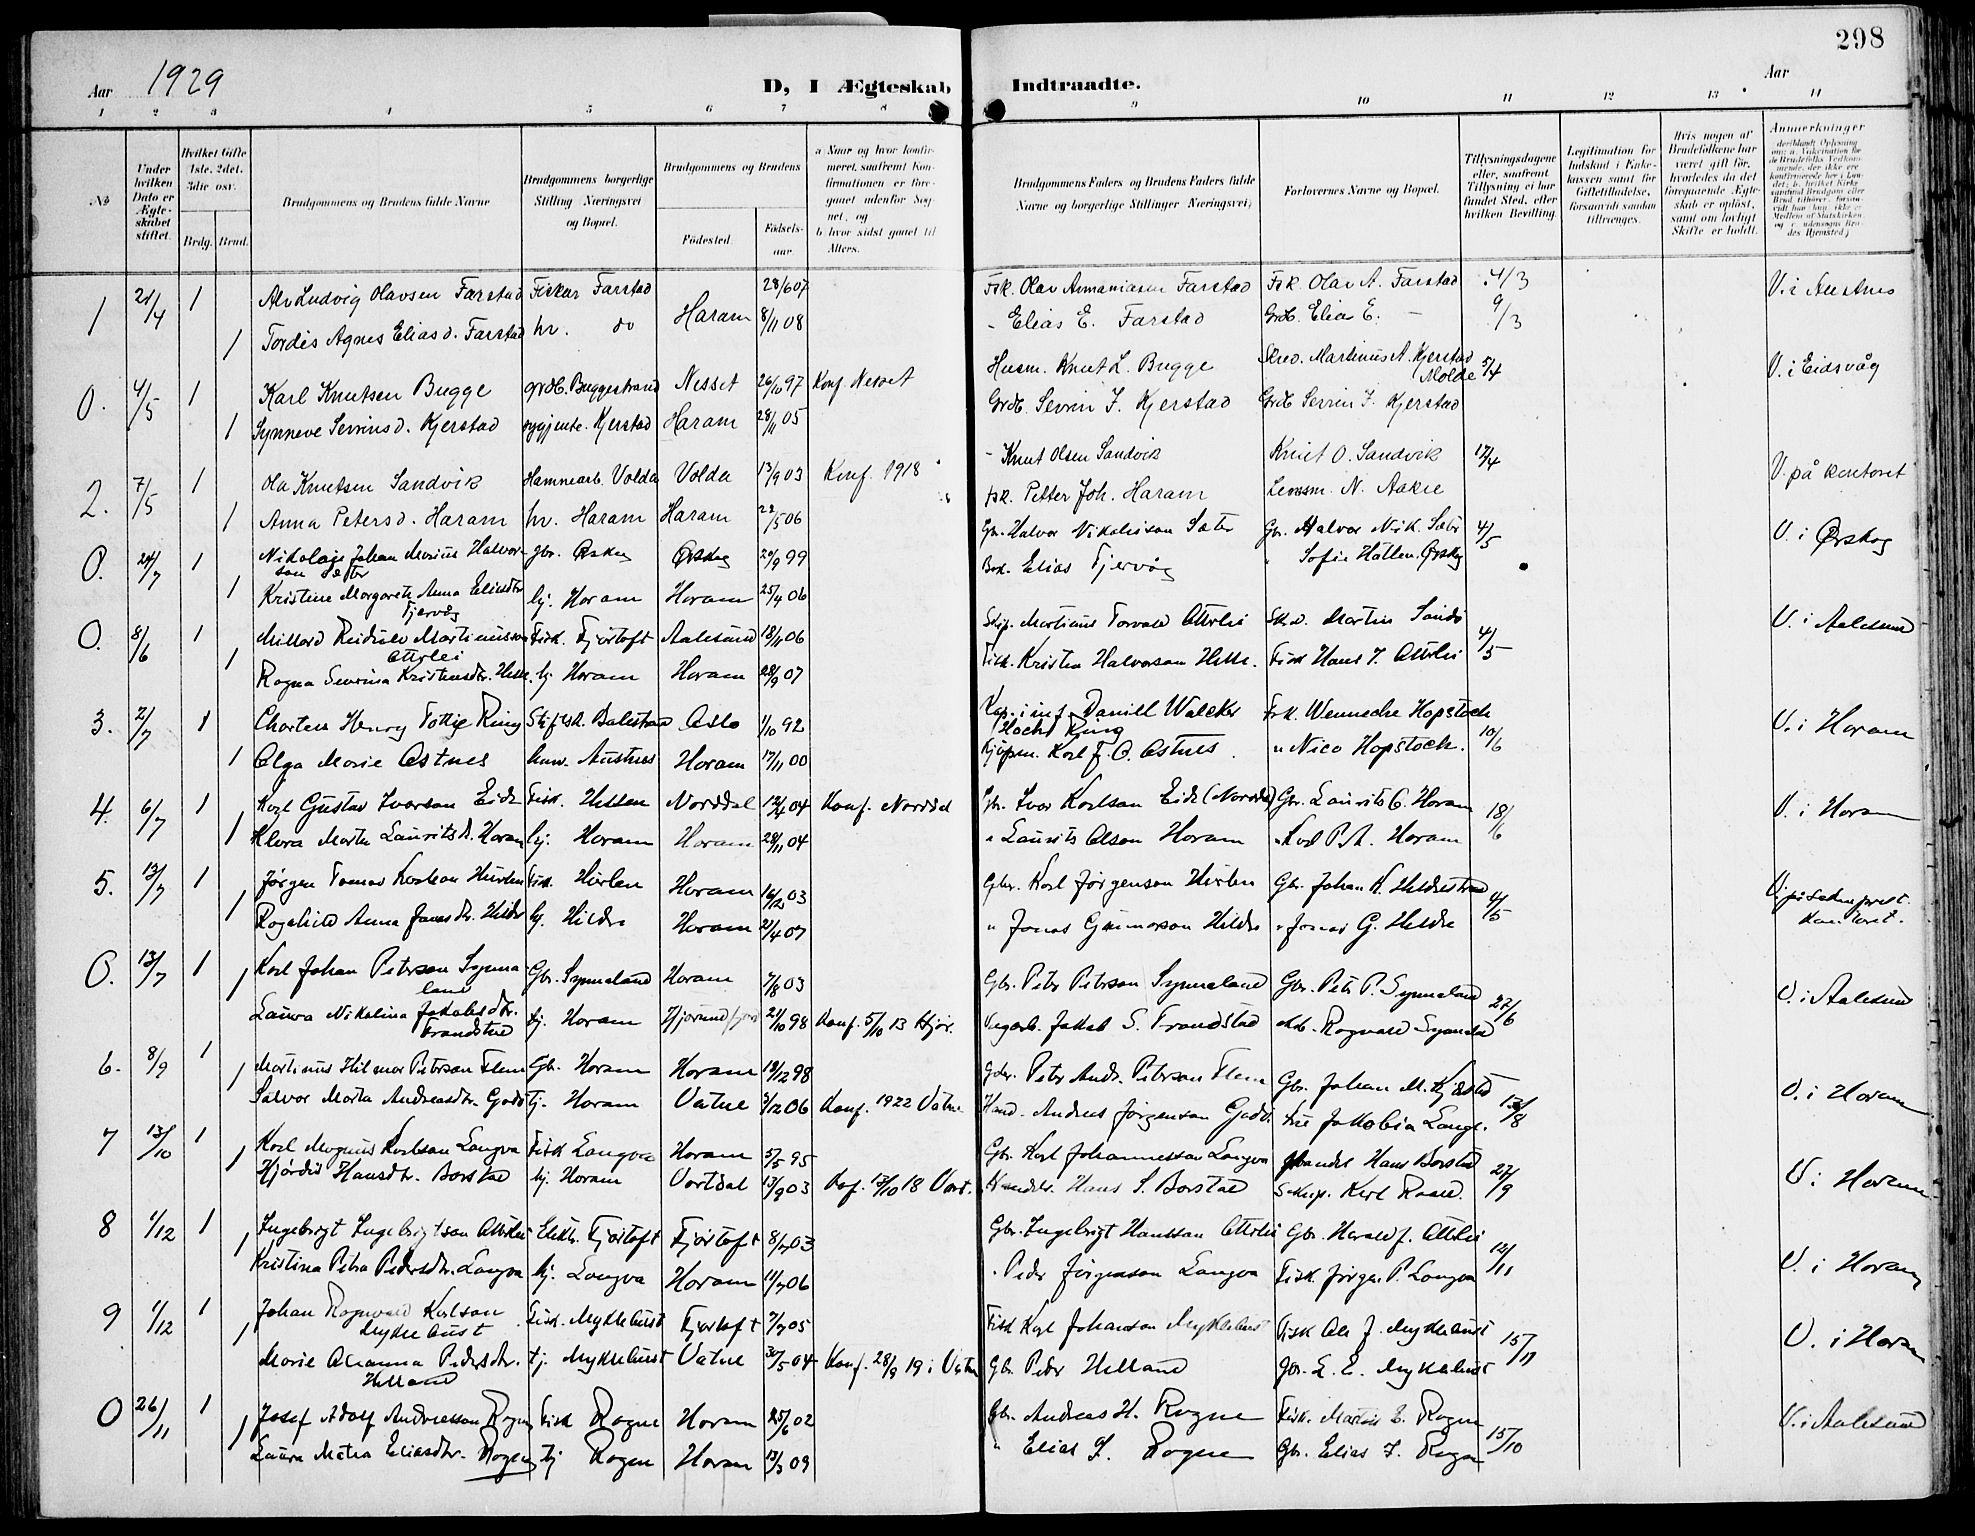 298
Aar 1929
D, I Ægteskab Indtraadte.
Aar
1 2 3 4 5 6 7 8 9 10 11 12 13 14
No
Under hvilken Dato er Ægteskabet stiftet.
Hvilket Gifte 1ste, 2det, 3die osv.
Brdg. Brud.
Brudgommens og Brudens fulde Navne
Brudgommens borgerlige Stilling Næringsvei og Bopæl.
Brudgommens og Brudens
Fødested. Fødselsaar
a Naar og hvor konfirmeret, saafremt Konfirmationen er foregaaet udenfor Sognet, og
b hvor sidst gaaet til Alters.
Brudgommens Faders og Brudens Faders fulde Navne og borgerlige Stillinger Næringsvei)
Forlovernes Navne og Bopæl.
Tillysningsdagene eller, saafremt Tillysning ei har fundet Sted, efter hvilken Bevilling.
Legitimation for Indskud i Enkekassen samt for Giftetilladelse, forsaavidt saadan tiltrænges.
Hvis nogen af Brudefolkene har været gift før, hvorledes da det foregaaende Ægteskab er opløst, samt om lovligt Skifte er holdt.
Anmerkninger
1 21/4 1 Alv Ludvig Olavsen Farstad Fiskar Farstad 28/6 07 Fsk. Olav Annaniasen Farstad Fsk. Olav A. Farstad 4/3 V. i Austnes
1 Tordis Agnes Eliasd. Farstad hr. do Haram 8/11 08 - Elias E. Farstad Grdb. Elias E. - 9/3
0. 4/5 1 Karl Knutsen Bugge grdb. Buggestrand Nesset 26/10 97 Konf. Nesset Husm. Knut L. Bugge Skred. Martinus A. Kjerstad Molde 5/4 V. i Eidsvåg
1 Synneve Sevrinsd. Kjerstad Kjerstad Haram 28/11 05 Grdb. Sevrin J. Kjerstad Grdb Sevrin J. Kjerstad
2. 7/5 1 Ola Knutsen Sandvik Hamnearb. Volda Volda 13/9 03 Konf. 1918 - Knut Olsen Sandvik Knut O. Sandvik 17/4 V. på kontoret
1 Anna Petersd. Haram hr. Haram Haram 22/5 06 fsk. Petter Joh. Haram Lensm. N. Aakre
0. 24/7 1 Nikolags Johan Marius Halvorson Sæter gbr. Ørskog Ørskog 20/9 99 Gbr. Halvor Nikolaison Sæter Gbr. Halvor Nik. Sæter 4/5 V. i Ørskog
1 Kristine Margarete Anna Eliasdtr Fjervåg hj. Haram Haram 25/4 06 Elias Fjervåg " Sofie Hatlen. Ørskog
0. 8/6 1 Millard Reidulv Martinusson Otterlei Fisk. Fjørtoft Aalesund 18/11 06 Skip. Martinus Torvald Otterlei Martin Sande 4/5 V. i Aalesund
1 Ragna Severina Kristensdtr. Helle hj. Haram Haram 28/9 07 Fisk. Kristen Halvorson Helle. Fisk Hans J. Otterlei
3. 2/7 1 Charles Henry Tottie Ring Balestrand Oslo 1/10 92 Kap. i inf. Daniell Walcker Hoch Ring Frk. Wennecke Hopstock 10/6 V. i Haram
1 Olga Marie Astnes Austnes Haram 17/11 00 Kjøpm. Karl F. O. Astnes. " Nico Hopstock.
4. 6/7 1 Karl Gustav Ivarson Eide Fisk. Hellen Norddal 12/4 04 Konf. Norddal Gbr. Ivar Karlson Eide (Norddal) Gbr. Laurits O. Haram 18/6 V. i Haram
1 Klara Marta Lauritsdt. Haram hj. Haram Haram 28/11 04 " Laurits Olson Haram " Karl P. A. Haram
5. 13/7 1 Jørgen Tomas Karlson Hurlen Fisk. Hurlen Haram 16/12 03 Gbr. Karl Jørgenson Hurlen Gbr. Johan K. Hildrestrand 4/5 V. på Sokneprest kontoret.
1 Ragnhild Anna Jonasdtr. Hildre hj. Hildre Haram 21/4 07 " Jonas Gunnarson Hildre " Jonas G. Hildre
0. 13/7 1 Karl Johan Peterson Synnaland Gbr. Synnaland Haram 7/8 03 Gbr. Peter Peterson Synnaland Gbr. Peter P. Synnaland 27/6 V. i Aalesund
1 Laura Nikolina Jakobsdtr. Trandstad hj. Haram Hjørundfjord 21/10 98 Konf. 5/10 13 Hjør. Vegarb. Jakob S. Trandstad Ragnvald Synnaland
6. 8/9 1 Martinus Hilmar Peterson Flem Gbr. Haram Haram 19/12 98 Gbr. Peter Andr. Peterson Flem Gbr. Johan M. Kjersta 13/8 V. i Haram
1 Salvor Marta Andreasdtr. Godø tj. Haram Vatne 5/12 06 Konf. 1922 Vatne Hand. Andreas Jørgenson Godø Fru Jakobia Longv.
7 13/10 1 Karl Magnus Karlson Longva Fisk Longva Haram 5/5 95 Gbr. Karl Johannesson Longva Handel Hans Borstad 27/9 V. i Haram
1 Hjørdis Hansdtr. Borstad hj. Haram Vartdal 13/9 03 Kof. 13/10 18 Vart. Handelr. Hans S. Borstad Karl Roald.
8 1/12 1 Ingebrigt Ingebrigtson Otterlei Elektr. Fjørtoft Fjørtoft 8/7 03 Gbr. Ingebrigt Hansson Otterlei Gbr. Harald J. Otterlei 12/11 V. i Haram
1 Kristina Petra Pedersdtr. Longva hj. Longva Haram 11/7 06 " Peder Jørgenson Longva Fisk. Jørgen P. Longva
9 1/12 1 Johan Ragnvald Karlson Myklebust Fisk. Myklebust Fjørtoft 7/7 05 Fisk Karl Johanson Myklebust Fisk Ole J. Myklebust 15/11 V. i Haram
1 Marie Olianna Pedersdtr. Helland tj. Myklebust Vatne 30/5 04 Konf. 28/9 19 i Vatne Gbr. Peder Helland Gbr. L. E. Myklebust
0 26/11 1 Josef Adolf Andreasson Rogne Fisk Rogne Haram 25/6 02 Gbr. Andreas H. Rogne Fisk. Martin E. Rogne 15/10 V. i Aalesund
1 Laura Matea Eliasdtr. Rogne hj Rogne Haram 13/3 09 " Elias J. Rogne Gbr. Elias J. Rogne